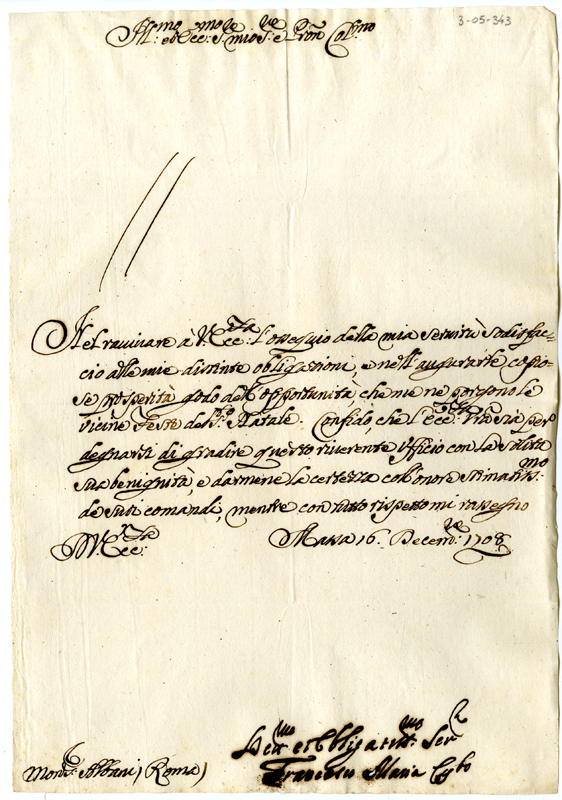 3-05-343
Ill:mo et Ecc:mo S:re mio S:re e Pron Col:mo
Nel ravvivare à V. Ecc:za l'ossequio della mia servitù sodisfac-
cio alle mie distinte obligazioni, e nell'augurarle copio-
se prosperità godo dell'opportunità, che me ne porgono le
vicine Feste del S:o Natale. Confido, che l'Ecc:za Vra sia per
degnarsi di gradire questo riverente Ufficio con la solita
sua benignità, e darmene la certezza coll'onore stimatiss:mo
de suoi comandi, mentre con tutto rispetto mi rassegno
D. V. Ecc:za Massa 16 Decem:re 1708
Dev:mo et Obligatiss:mo Ser:r
Francesco Maria Cybo
Mons:r Albani (Roma)